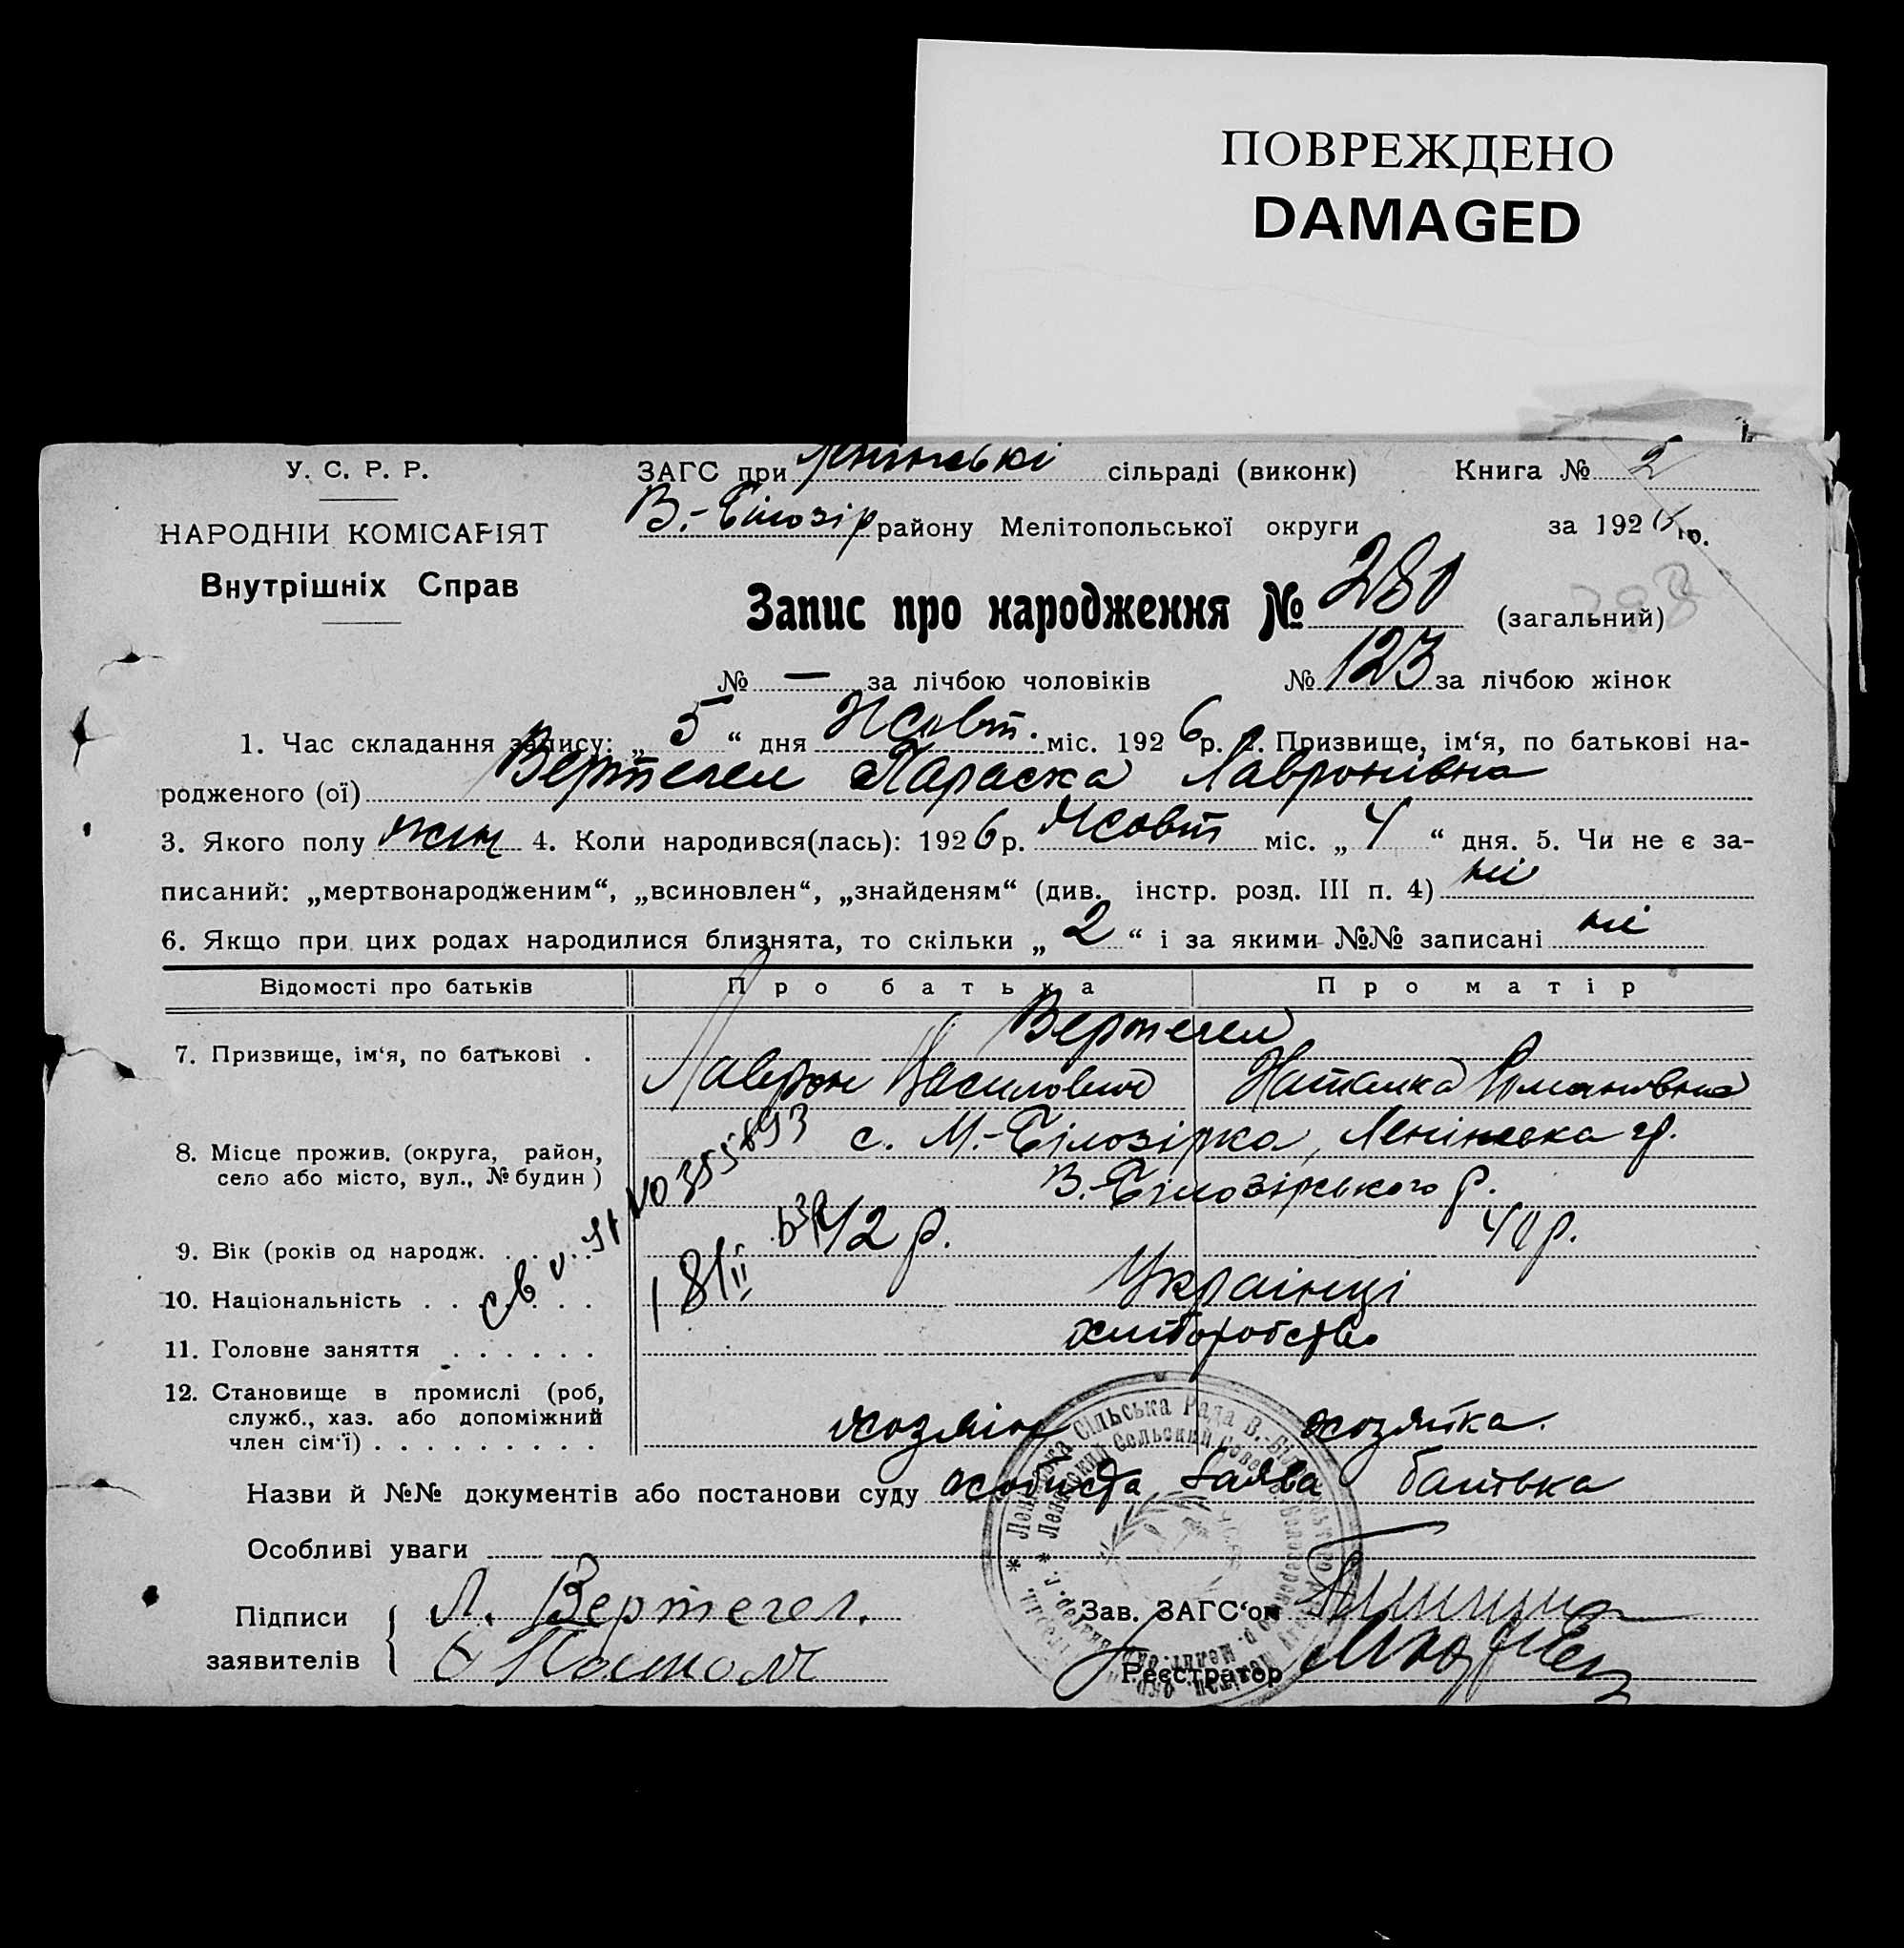 ПОВРЕЖДЕНО
DAMAGED
У. С. Р. Р.
НАРОДНІЙ КОМІСАРІЯТ
Внутрішніх Справ
ЗАГС при Ленінські сільраді (виконк) Книга № 2
В.-Білозір району Мелітопольської округи за 1926 р.
Запис про народження № 280 (загальний)
№ — за лічбою чоловіків № 123 за лічбою жінок
1. Час складання запису: „ 5 “ дня Жовт. міс. 1926 р. 2. Призвище, ім‘я, по батькові на-
родженого (ої) Вертегел Параска Лавронівна
3. Якого полу жін 4. Коли народився(лась): 1926 р. Жовт міс. „ 4 “ дня. 5. Чи не є за-
писаний: „мертвонародженим“, „всиновлен“, „знайденям“ (див. інстр. розд. III п. 4) ні
6. Якщо при цих родах народилися близнята, то скільки „ 2 “ і за якими №№ записані ні
Відомості про батьків Про батька Про матір
7. Призвище, ім‘я, по батькові . Вертегел
Лаврон Василович Наталка Романовна
8. Місце прожив. (округа, район, с. М.-Білозірка, Ленінська
село або місто, вул., № будин) В.-Білозірського р.
9. Вік (років од народж. 42 р. 40 р.
10. Національність Українці
11. Головне заняття хліборобство
12. Становище в промислі (роб,
служб., хаз. або допоміжний
член сім‘ї) хозяін хозяйка.
Назви й №№ документів або постанови суду особиста заява батька
Особливі уваги
Підписи Л. Вертегел. Зав. ЗАГС‘ом
заявителів Реєстратор